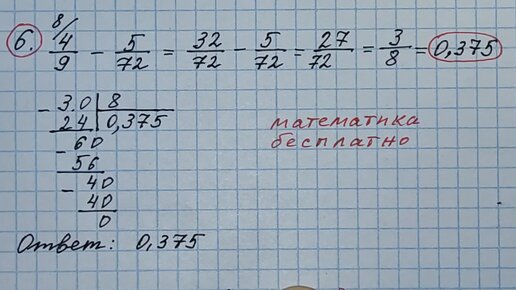 6. 8/ 4/9 - 5/72 = 32/72 - 5/72 = 27/72 = 3/8 = 0,375
- 3.0 | 8
24 | 0,375
- 60
56
- 40
40
0
математика
бесплатно
Ответ: 0,375